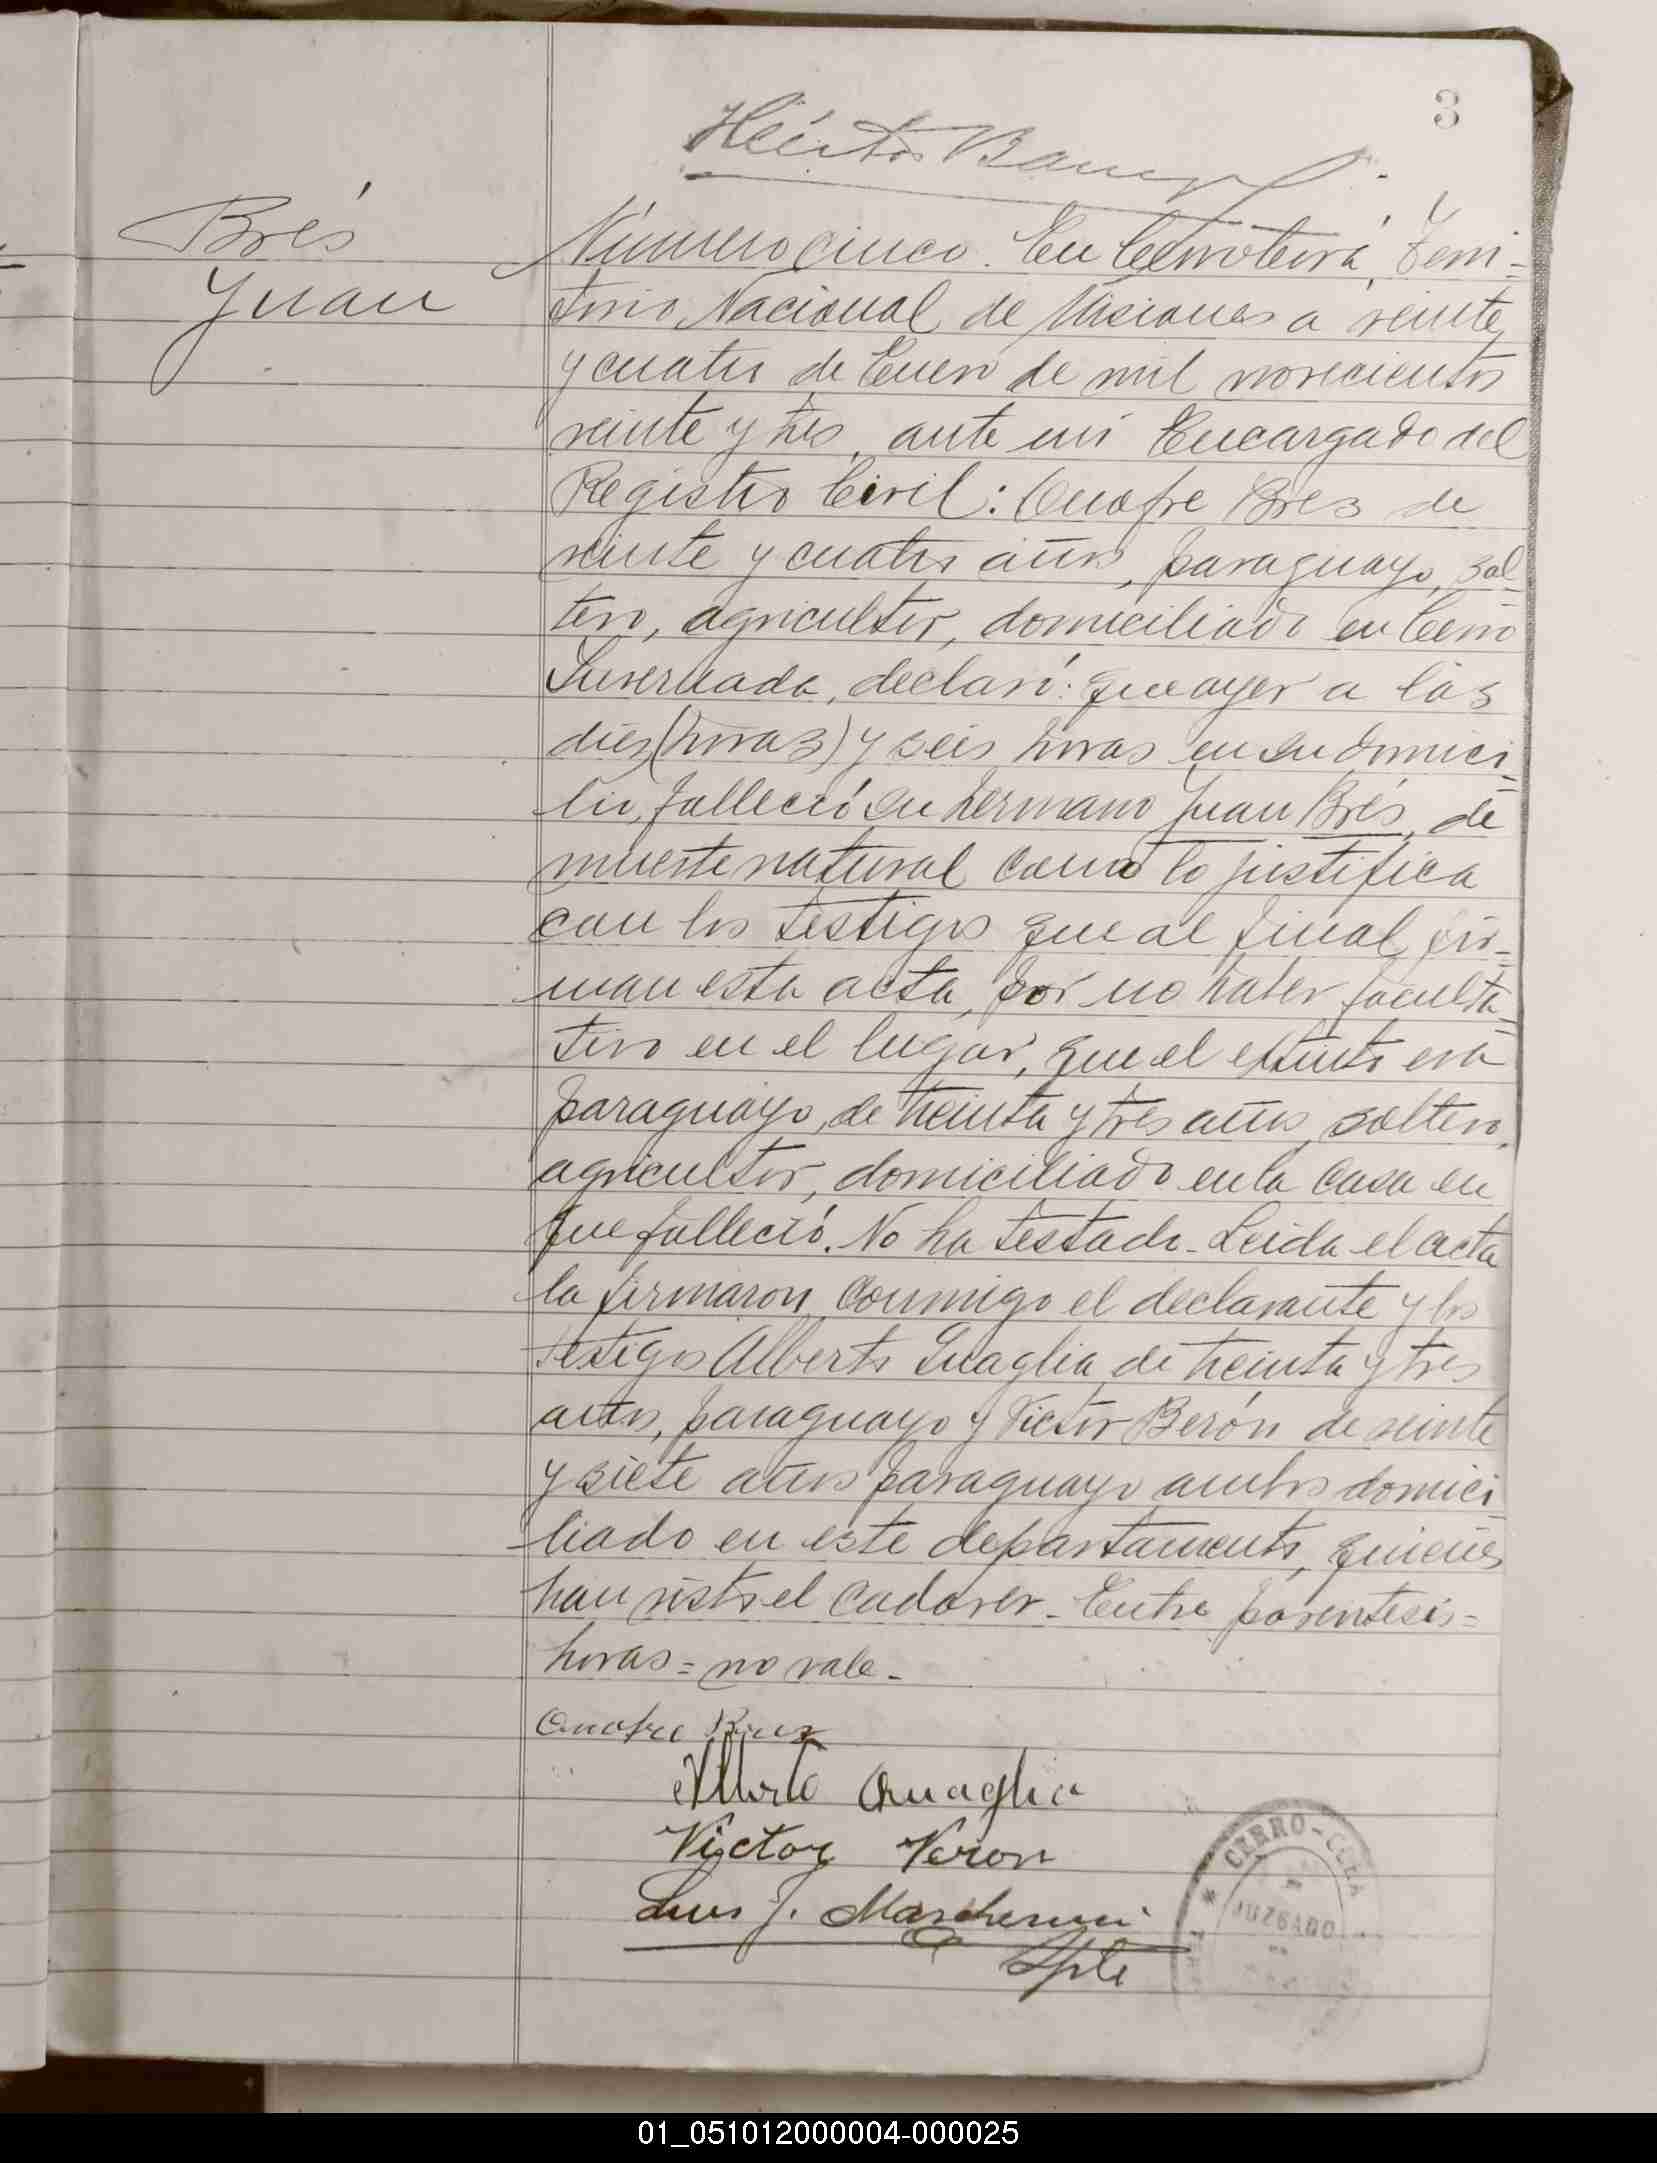 3
Héctor
Brés
Juan
Número cinco. En Cerrocorá, Terri-
torio Nacional de Misiones a veinte
y cuatro de Enero de mil novecientos
veinte y tres, ante mi Encargado del
Registro Civil: Onofre Bres de
veinte y cuatro años, paraguayo, sol-
tero, agricultor, domiciliado en Cerro
Invernada, declaró: que ayer a las
dies (horas) y seis horas en su domici-
lio, falleció su hermano Juan Brés, de
muerte natural como lo justifica
con los testigos que al final fir-
man esta acta, por no haber faculta-
tivo en el lugar, que el extinto era
paraguayo, de treinta y tres años, soltero,
agricultor, domiciliado en la casa en
que falleció. No ha testado. Leida el acta
la firmaron conmigo el declarante y los
testigos Alberto Quaglia de treinta y tres
años, paraguayo y Victor Berón de veinte
y siete años paraguayo ambos domici
liado en este departamento, quienes
han visto el cadaver. Entre parentesis=
horas = no vale.
Onofre
Alberto Quaglia
Victor Veron
Luis J.
Splte
CERRO-CORA
JUZGADO
01_051012000004-000025